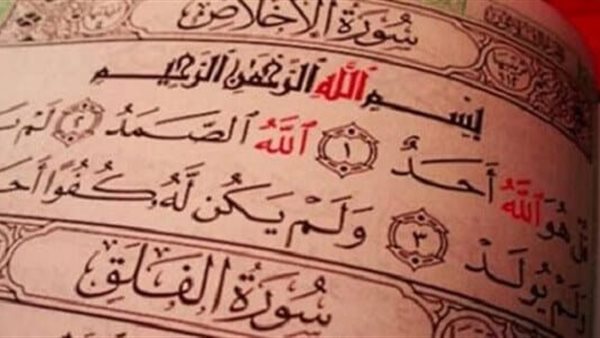 سُورَةُ الإِخْلَاصِ
بِسْمِ ٱللَّهِ ٱلرَّحْمَٰنِ ٱلرَّحِيمِ
قُلْ هُوَ ٱللَّهُ أَحَدٌ ١ ٱللَّهُ ٱلصَّمَدُ ٢ لَمْ
وَلَمْ يُولَدْ ٣ وَلَمْ يَكُن لَّهُۥ كُفُوًا
سُورَةُ الْفَلَقِ